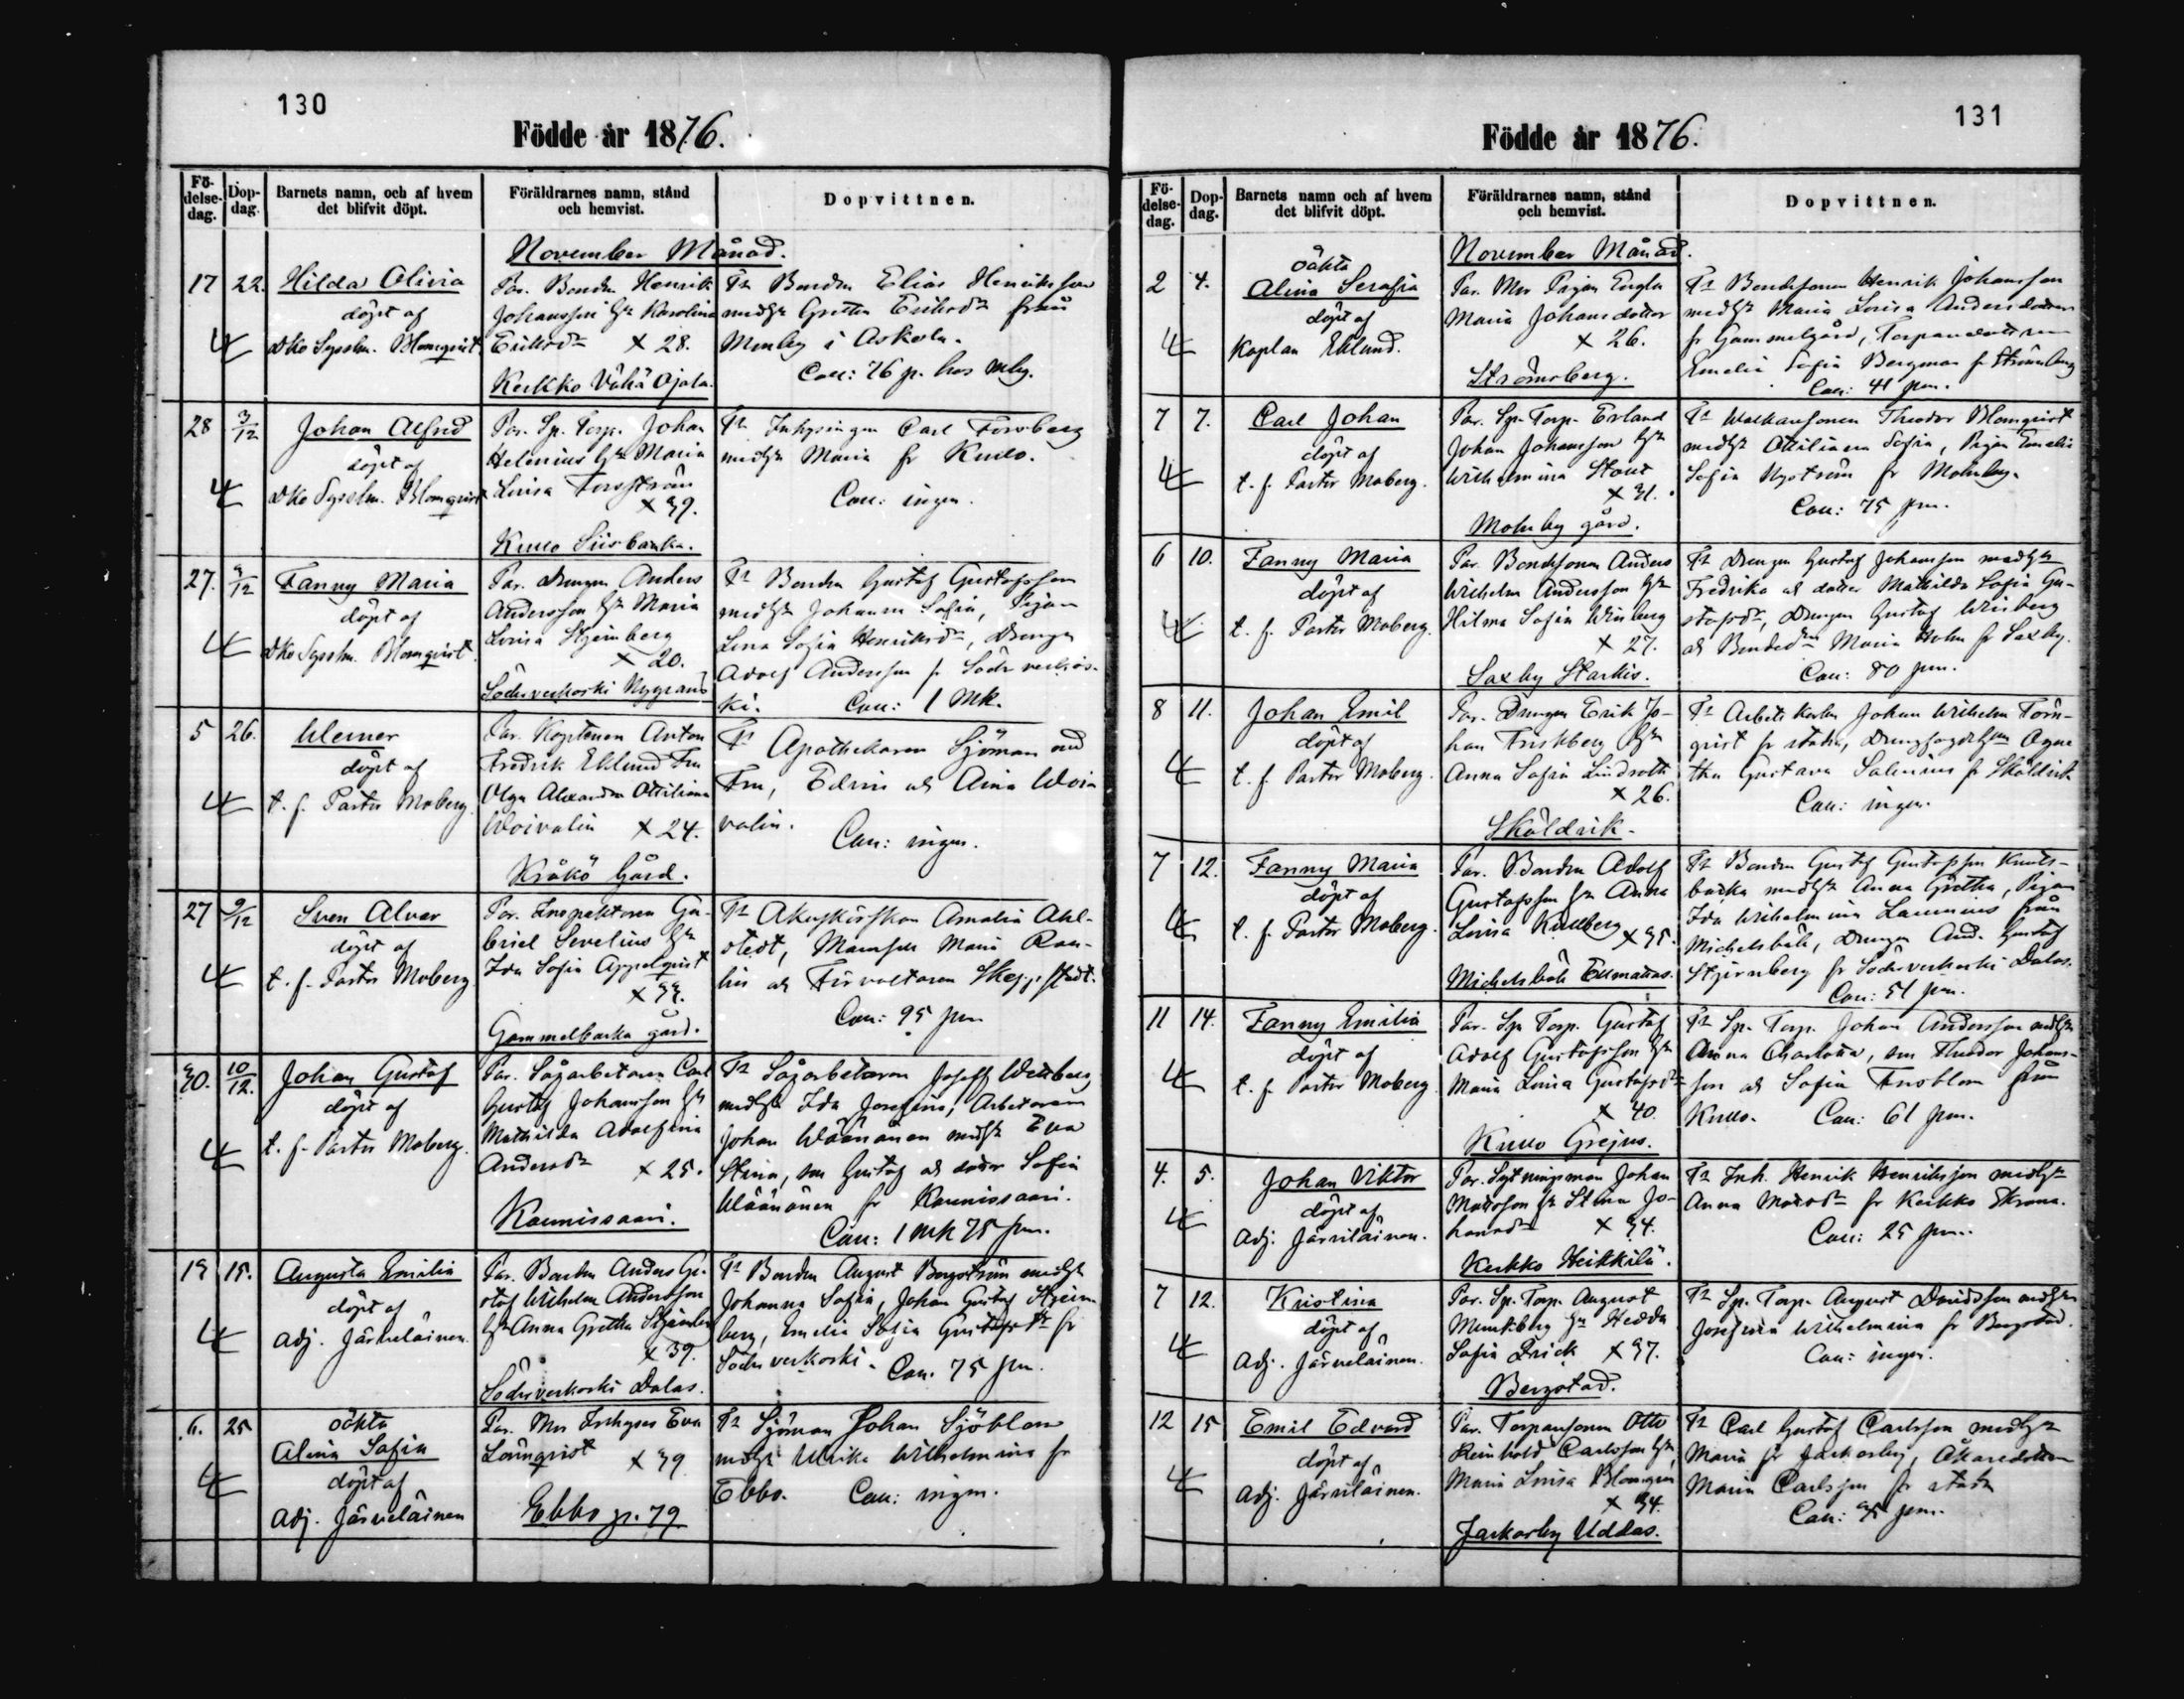 130
Födde år 1876.
Födelsedag. Dopdag. Barnets namn, och af hvem det blifvit döpt. Föräldrarnes namn, stånd och hemvist. Dopvittnen.
November Månad.
17 22. Hilda Olivia
döpt af
vko Sysslm. Blomqvist
Par. Bonden Henrik
Johansson hu Karolina
Eriksdr x 28.
Kerkko Vähä Ojala.
Tn Bonden Elias Henriksson
medh Gretha Eriksdr från
Monby i Askola.
Coll: 76 p. hos mby.
28 3/12 Johan Alfrid
döpt af
vko Sysslm. Blomqvist
Par. Sp. Torp. Johan
Helenius hu Maria
Lovisa Forsström
x 39.
Kullo Siisbacka.
Tn Inhysingen Carl Forsberg
medh Maria fr Kullo.
Coll: ingen.
27. 3/12 Fanny Maria
döpt af
vko Sysslm. Blomqvist
Par. Drengen Anders
Andersson hu Maria
Lovisa Stjernberg
x 20.
Söderveckoski Nygrans
Tn Bonden Gustaf Gustafsson
medh Johanna Sofia, Pigan
Lena Sofia Henriksdr, Drengen
Adolf Andersson fr Söderveckos-
ki. Coll: 1 Mk.
5 26. Werner
döpt af
t. f. Pastor Moberg
Par. Kaptenen Anton
Fredrik Eklund Fru
Olga Alexandra Ottiliana
Woivalin x 24.
Kråkö Gård.
Tn Apothekaren Sjöman med
Fru, Edvin och Aina Woi
valin. Coll: ingen.
27 9/12 Sven Alvar
döpt af
t. f. Pastor Moberg
Par. Inspektoren Ga-
briel Sevelius hu
Ida Sofia Appelqvist
x 33.
Gammelbacka gård.
Tn Amalia Ahl-
stedt, Mamsell Maria
och Förvaltaren Skeppstedt.
Coll: 95 pm
30. 10/12. Johan Gustaf
döpt af
t. f. Pastor Moberg.
Par. Sågarbetaren Carl
Gustaf Johansson hu
Mathilda Adolfina
Andersdr x 25.
Raunissaari.
Tn Sågarbetaren Josef Wekberg
medh Ida Josefina, Arbetaren
Johan Wäänänen medh Eva
Stina, son Gustaf och dotter Sofia
Wäänänen fr Raunissaari.
Coll: 1 mk 75 pm.
19 15. Augusta Emilia
döpt af
Adj. Järveläinen.
Par. Bonden Anders Gu-
staf Wilhelm Andersson
hu Anna Gretha Stjernberg
x 39.
Söderveckoski Dalas.
Tn Bonden August Bergström medh
Johanna Sofia, Johan Gustaf Stjern
berg, Emelia Sofia Gustafsdr fr
Söderveckoski. Coll. 75 pm.
6. 25 oäkta
Alina Sofia
döpt af
Adj. Järveläinen
Par. Mor Inhyses Eva
Lönnqvist x 39
Ebbo p. 79
Tn Sjöman Johan Sjöblom
medh Ulrika Wilhelmina fr
Ebbo. Coll: ingen.
131
Födde år 1876.
Födelsedag. Dopdag. Barnets namn och af hvem det blifvit döpt. Föräldrarnes namn, stånd och hemvist. Dopvittnen.
November Månad.
2 4. oäkta
Alina Serafia
döpt af
Kaplan Eklund.
Par. Mor Pigan Engla
Maria Johansdotter
x 26.
Strömsberg.
Tn Bondesonen Henrik Johansson
medh Maria Lovisa Andersdotter
fr Gammelgård, Torparedottren
Emelia Sofia Bergman fr Strömsberg
Coll: 41 pm.
7 7. Carl Johan
döpt af
t. f. Pastor Moberg.
Par. Sp. Torp. Erland
Johan Johansson hu
Wilhelmina Stout
x 31.
Molnby gård.
Tn Theodor Blomqvist
medh Ottiliana Sofia, Pigan Emelia
Sofia Nyström fr Molnby.
Coll: 75 pm.
6 10. Fanny Maria
döpt af
t. f. Pastor Moberg.
Par. Bondesonen Anders
Wilhelm Andersson hu
Hilma Sofia Winberg
x 27.
Saxby Starkis.
Tn Drengen Gustaf Johansson medh
Fredrika och dotter Mathilda Sofia Gu-
stafsdr, Drengen Gustaf Winberg
och Maria Holm fr Saxby.
Coll: 80 pm.
8 11. Johan Emil
döpt af
t. f. Pastor Moberg.
Par. Drengen Erik Jo-
han Friskberg hu
Anna Sofia Lindroth
x 26.
Sköldvik.
Tn Arbets Karlen Johan Wilhelm Törn-
qvist fr staden, Agne
tha Gustava Salenius fr Sköldvik
Coll: ingen.
7 12. Fanny Maria
döpt af
t. f. Pastor Moberg.
Par. Bonden Adolf
Gustafsson hu Anna
Lovisa Kullberg x 35.
Michelsböle Tillmattas.
Tn Bonden Gustaf Gustafsson Knuts-
backa medh Anna Gretha, Pigan
Ida Wilhelmina Laurenius från
Michelsböle, Drengen And. Gustaf
Stjernberg fr Söderveckoski Dalas.
Coll: 51 pm.
11 14. Fanny Emilia
döpt af
t. f. Pastor Moberg
Par. Sp. Torp. Gustaf
Adolf Gustafsson hu
Maria Lovisa Gustafsdr
x 40.
Kullo Grejus.
Tn Sp. Torp. Johan Andersson medh
Anna Charlotta, son Theodor Johans-
son och Sofia Enoblom från
Kullo. Coll: 61 pm.
4. 5. Johan Viktor
döpt af
Adj. Järveläinen.
Par. Sytningsman Johan
Matsson hu Stina Jo-
hansdr x 34.
Kerkko Heikkilä.
Tn Inh. Henrik Henriksson medh
Anna Matsdr fr Kerkko Skrama.
Coll: 25 pm.
7 12. Kristina
döpt af
Adj. Järveläinen.
Par. Sp. Torp. August
Munckberg hu Hedda
Sofia Frick x 37.
Bergstad.
Tn Sp. Torp. August Davidsson medh
Josefina Wilhelmina fr Bergstad.
Coll: ingen.
12 15 Emil Edvard
döpt af
Adj. Järveläinen.
Par. Torparesonen Otto
Reinhold Carlsson hu
Maria Lovisa Blomqvist
x 34.
Jackarby Uddas.
Tn Carl Gustaf Carlsson medh
Maria fr Jackarby, Åkaredottren
Maria Carlsson fr staden
Coll: 35 pm.